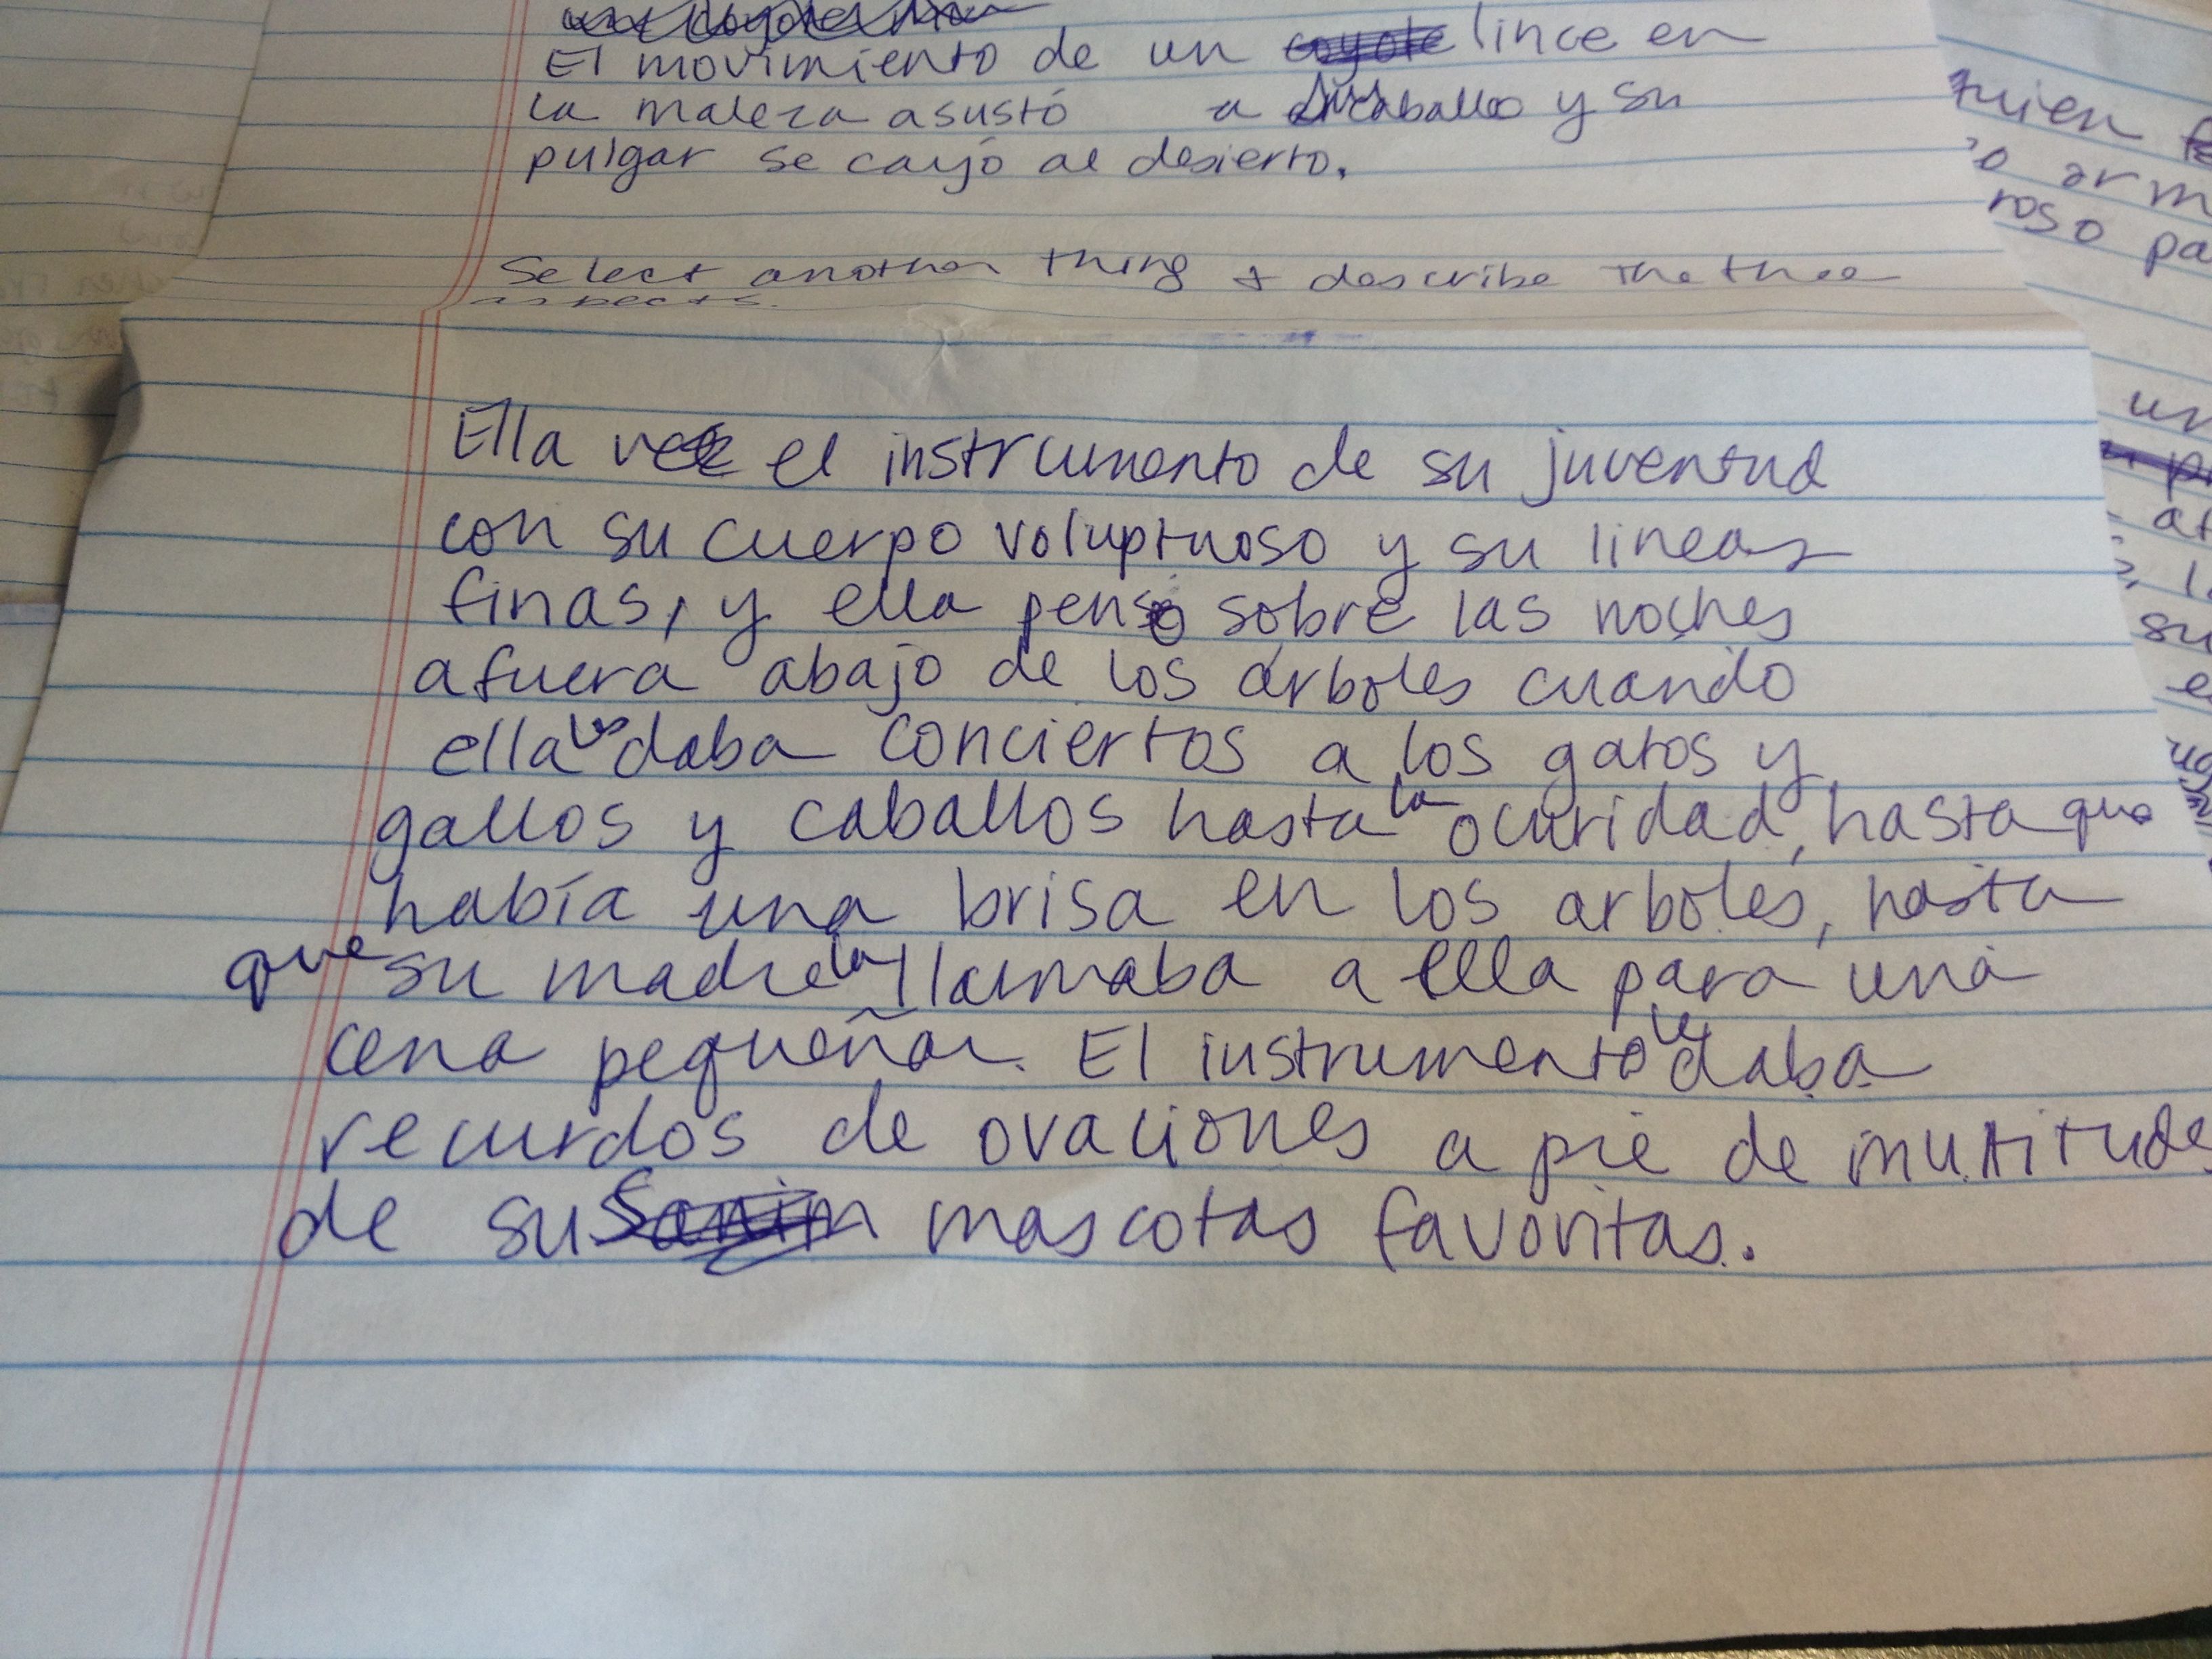 El movimiento de un lince en
la maleza asustó a su caballo y su
pulgar se cayó al desierto.
Select another thing & describe the thee
aspects.
Ella ve el instrumento de su juventud
con su cuerpo voluptuoso y su lineas
finas, y ella pensó sobre las noches
afuera abajo de los árboles cuando
ella les daba conciertos a los gatos y
gallos y caballos hasta la ocuridad, hasta que
había una brisa en los arboles, hasta
que su madre la llamaba a ella para una
cena pequeña. El instrumento le daba
recurdos de ovaciones a pie de multitudes
de sus mascotas favoritas.
uien
o arm
roso pa
un